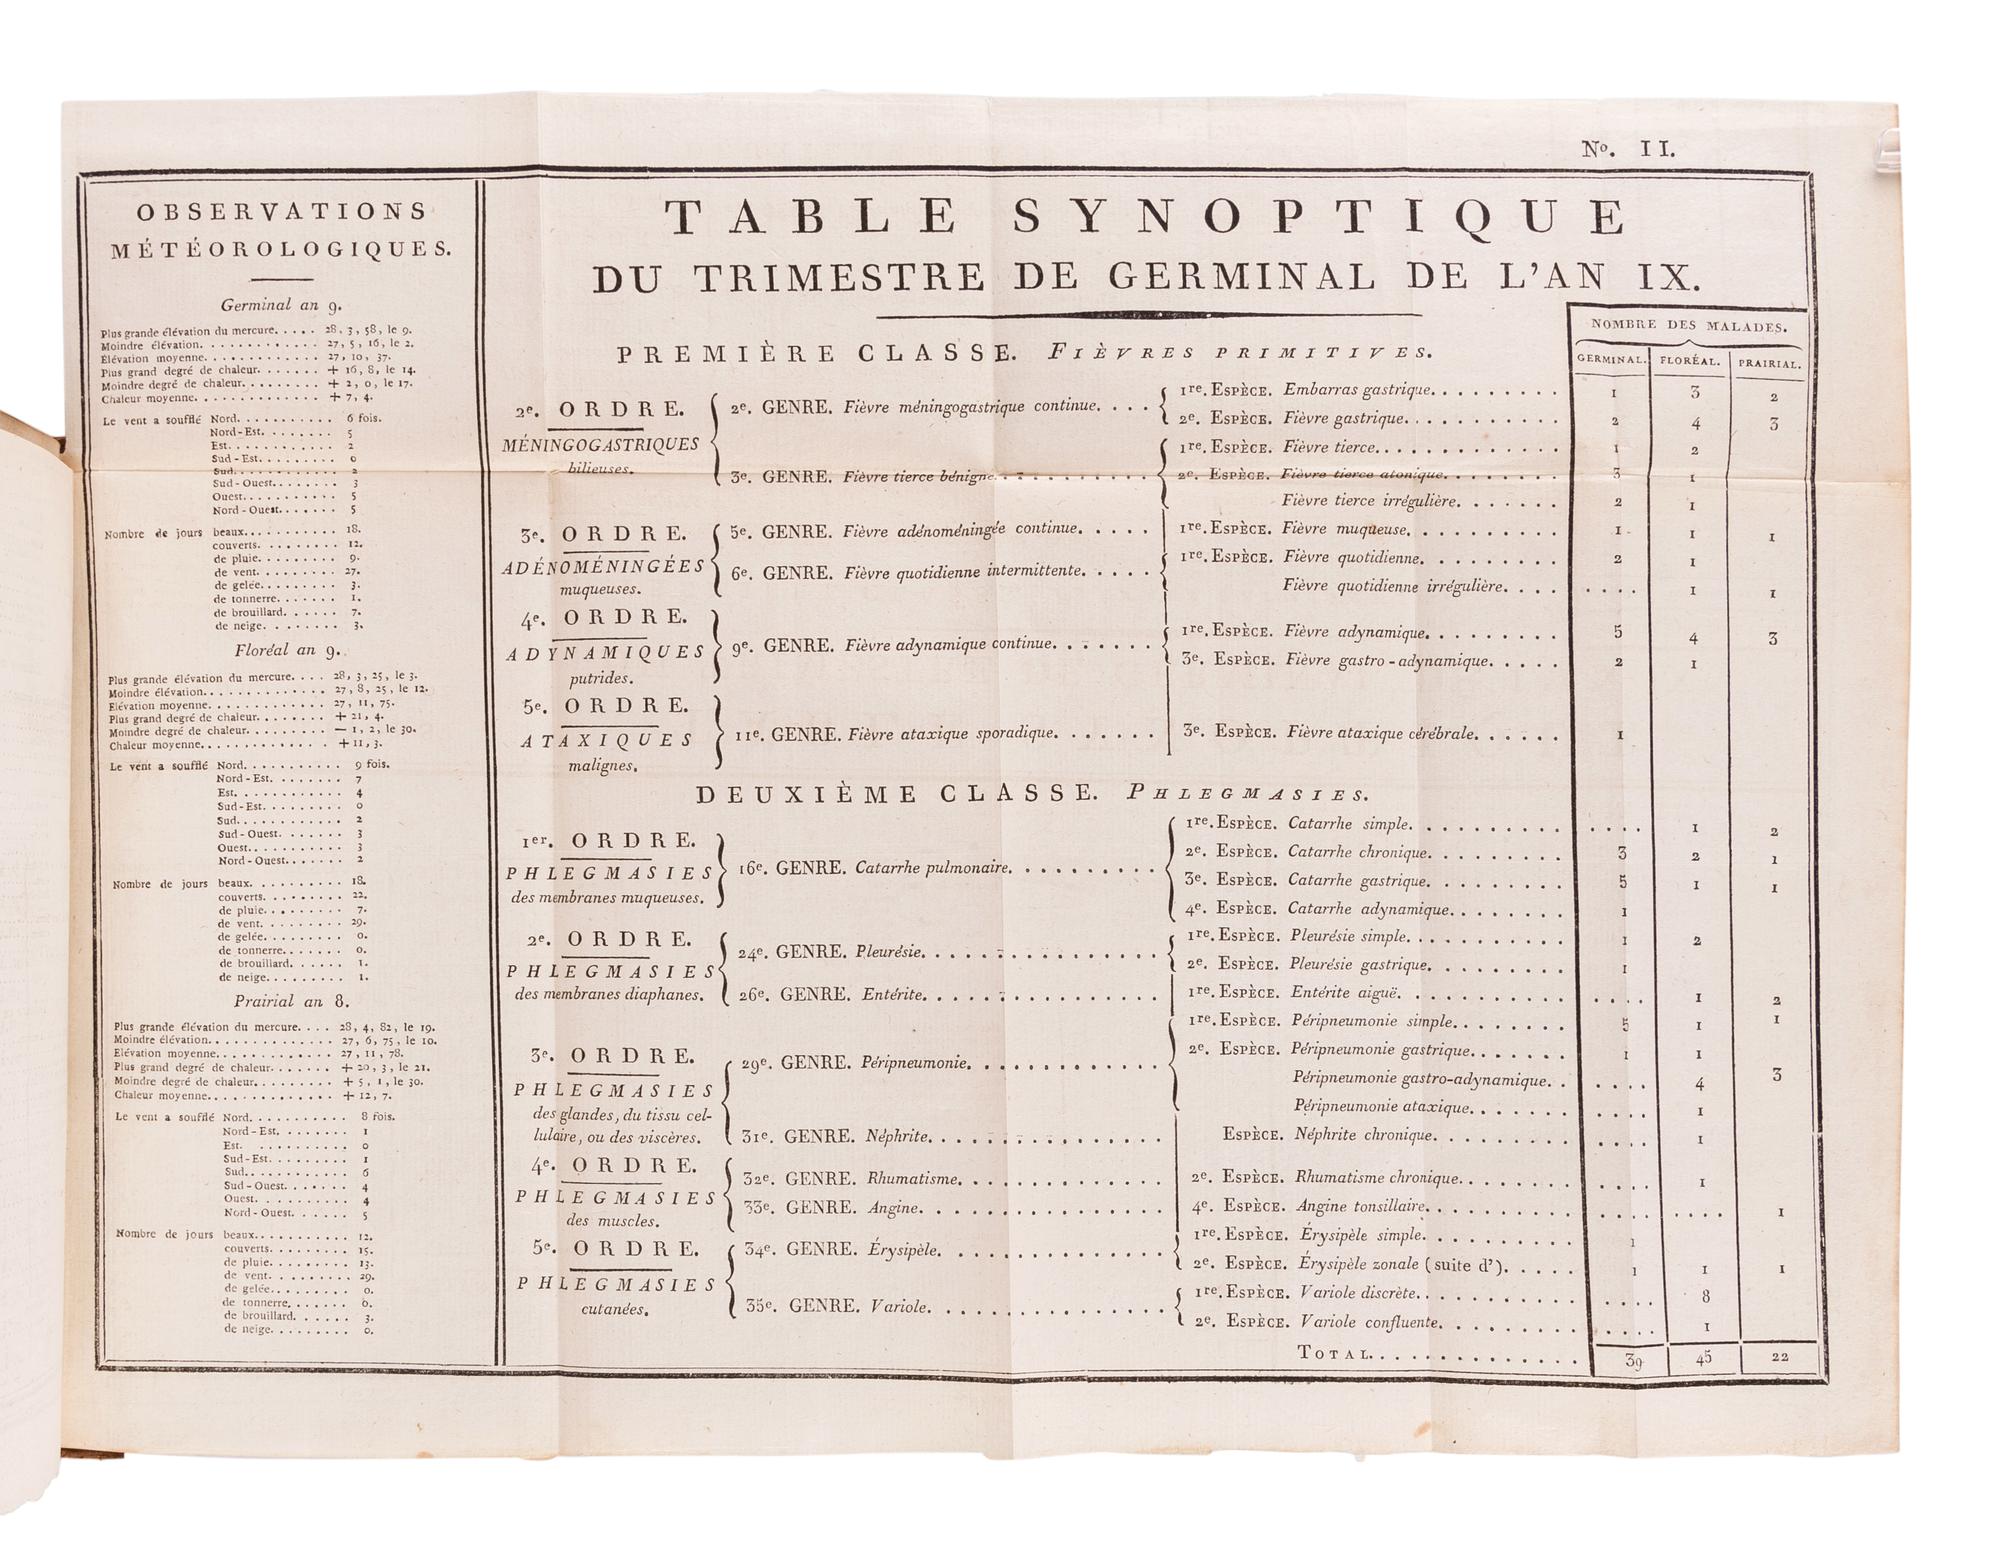 Nº. II.
OBSERVATIONS
MÉTÉOROLOGIQUES.
Germinal an 9.
Plus grande élévation du mercure..... 28, 3, 58, le 9.
Moindre élévation............. 27, 5, 16, le 2.
Élévation moyenne............ 27, 10, 37.
Plus grand degré de chaleur....... + 16, 8, le 14.
Moindre degré de chaleur......... + 2, 0, le 17.
Chaleur moyenne............. + 7, 4.
Le vent a soufflé Nord........... 6 fois.
Nord-Est........ 5
Est............ 2
Sud-Est......... 0
Sud............ 2
Sud-Ouest....... 3
Ouest.......... 5
Nord-Ouest....... 5
Nombre de jours beaux........... 18.
couverts......... 12.
de pluie......... 9.
de vent......... 27.
de gelée......... 3.
de tonnerre....... 1.
de brouillard...... 7.
de neige......... 3.
Floréal an 9.
Plus grande élévation du mercure.... 28, 3, 25, le 3.
Moindre élévation............. 27, 8, 25, le 12.
Elévation moyenne............ 27, 11, 75.
Plus grand degré de chaleur....... + 21, 4.
Moindre degré de chaleur......... — 1, 2, le 30.
Chaleur moyenne............. + 11, 3.
Le vent a soufflé Nord........... 9 fois.
Nord-Est........ 7
Est............ 4
Sud-Est......... 0
Sud............ 2
Sud-Ouest....... 3
Ouest.......... 3
Nord-Ouest....... 2
Nombre de jours beaux.......... 18.
couverts......... 22.
de pluie......... 7.
de vent......... 29.
de gelée......... 0.
de tonnerre....... 0.
de brouillard...... 1.
de neige......... 1.
Prairial an 8.
Plus grande élévation du mercure.... 28, 4, 82, le 19.
Moindre élévation............. 27, 6, 75, le 10.
Elévation moyenne............ 27, 11, 78.
Plus grand degré de chaleur....... + 20, 3, le 21.
Moindre degré de chaleur......... + 5, 1, le 30.
Chaleur moyenne............. + 12, 7.
Le vent a soufflé Nord........... 8 fois.
Nord-Est........ 1
Est............ 0
Sud-Est......... 1
Sud............ 6
Sud-Ouest....... 4
Ouest.......... 4
Nord-Ouest....... 5
Nombre de jours beaux.......... 12.
couverts......... 15.
de pluie......... 13.
de vent......... 29.
de gelée......... 0.
de tonnerre....... 0.
de brouillard...... 3.
de neige......... 0.
TABLE SYNOPTIQUE
DU TRIMESTRE DE GERMINAL DE L'AN IX.
NOMBRE DES MALADES.
GERMINAL. FLORÉAL. PRAIRIAL.
PREMIÈRE CLASSE. FIÈVRES PRIMITIVES.
2e. ORDRE.
MÉNINGOGASTRIQUES
bilieuses.
2e. GENRE. Fièvre méningogastrique continue....
1re. ESPÈCE. Embarras gastrique......... 1 3 2
2e. ESPÈCE. Fièvre gastrique........... 2 4 3
3e. GENRE. Fièvre tierce bénigne............
1re. ESPÈCE. Fièvre tierce............. 1 2
2e. ESPÈCE. Fièvre tierce atonique........ 3 1
Fièvre tierce irrégulière....... 2 1
3e. ORDRE.
ADÉNOMÉNINGÉES
muqueuses.
5e. GENRE. Fièvre adénoméningée continue.....
1re. ESPÈCE. Fièvre muqueuse.......... 1 1 1
6e. GENRE. Fièvre quotidienne intermittente.....
1re. ESPÈCE. Fièvre quotidienne......... 2 1
Fièvre quotidienne irrégulière........ 1 1
4e. ORDRE.
ADYNAMIQUES
putrides.
9e. GENRE. Fièvre adynamique continue.......
1re. ESPÈCE. Fièvre adynamique......... 5 4 3
3e. ESPÈCE. Fièvre gastro-adynamique..... 2 1
5e. ORDRE.
ATAXIQUES
malignes.
11e. GENRE. Fièvre ataxique sporadique.......
3e. ESPÈCE. Fièvre ataxique cérébrale...... 1
DEUXIÈME CLASSE. PHLEGMASIES.
1er. ORDRE.
PHLEGMASIES
des membranes muqueuses.
16e. GENRE. Catarrhe pulmonaire..........
1re. ESPÈCE. Catarrhe simple.............. 1 2
2e. ESPÈCE. Catarrhe chronique......... 3 2 1
3e. ESPÈCE. Catarrhe gastrique......... 5 1 1
4e. ESPÈCE. Catarrhe adynamique........ 1
2e. ORDRE.
PHLEGMASIES
des membranes diaphanes.
24e. GENRE. Pleurésie.................
1re. ESPÈCE. Pleurésie simple.......... 1 2
2e. ESPÈCE. Pleurésie gastrique......... 1
26e. GENRE. Entérite.................
1re. ESPÈCE. Entérite aiguë.............. 1 2
3e. ORDRE.
PHLEGMASIES
des glandes, du tissu cel-
lulaire, ou des viscères.
29e. GENRE. Péripneumonie.............
1re. ESPÈCE. Péripneumonie simple........ 5 1 1
2e. ESPÈCE. Péripneumonie gastrique....... 1 1
Péripneumonie gastro-adynamique...... 4 3
Péripneumonie ataxique........... 1
31e. GENRE. Néphrite................
ESPÈCE. Néphrite chronique............. 1
4e. ORDRE.
PHLEGMASIES
des muscles.
32e. GENRE. Rhumatisme..............
2e. ESPÈCE. Rhumatisme chronique............ 1
33e. GENRE. Angine.................
4e. ESPÈCE. Angine tonsillaire................. 1
5e. ORDRE.
PHLEGMASIES
cutanées.
34e. GENRE. Érysipèle................
1re. ESPÈCE. Érysipèle simple.......... 1
2e. ESPÈCE. Érysipèle zonale (suite d')..... 1 1 1
35e. GENRE. Variole.................
1re. ESPÈCE. Variole discrète.............. 8
2e. ESPÈCE. Variole confluente............. 1
TOTAL............. 39 45 22